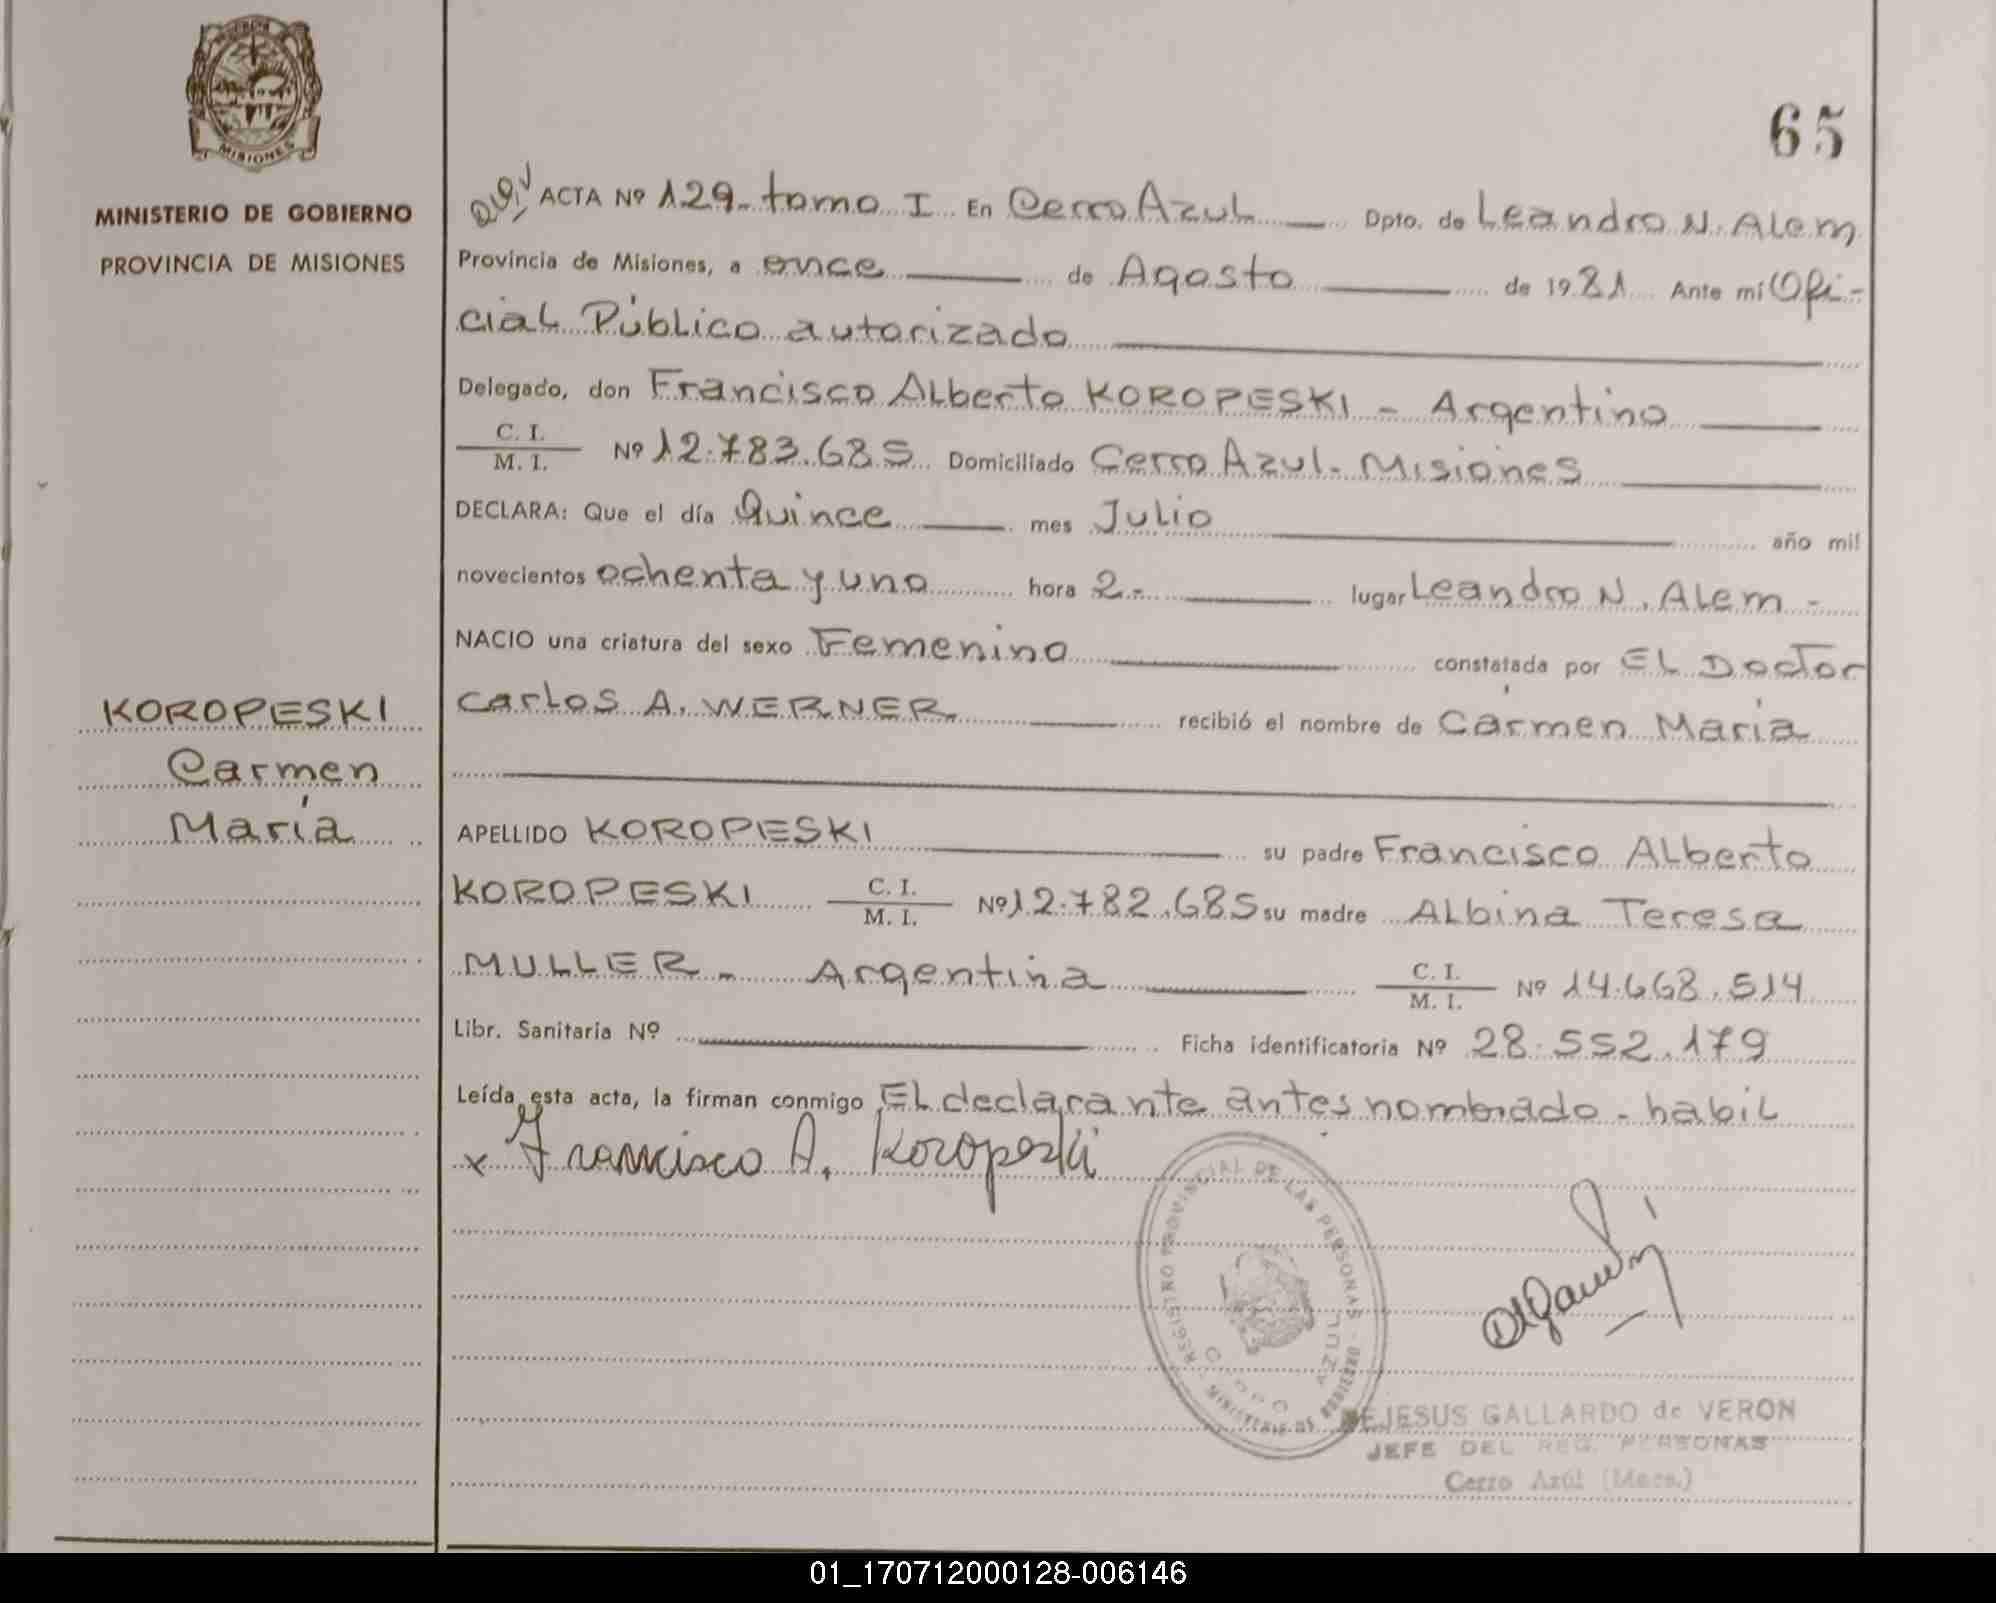 MISIONES
MINISTERIO DE GOBIERNO
PROVINCIA DE MISIONES
65
ACTA Nº 129- tomo I En Cerro Azul Dpto. de Leandro N. Alem
Provincia de Misiones, a once de Agosto de 1981 Ante mi Ofi-
cial Público autorizado
Delegado, don Francisco Alberto KOROPESKI - Argentino
C. I.
M. I. Nº 12.783.685 Domiciliado Cerro Azul- Misiones
DECLARA: Que el día Quince mes Julio año mil
novecientos ochenta y uno hora 2.- lugar Leandro N. Alem -
NACIO una criatura del sexo Femenino constatada por El Doctor
Carlos A. WERNER. recibió el nombre de Carmen María
KOROPESKI
Carmen
María
APELLIDO KOROPESKI su padre Francisco Alberto
KOROPESKI C. I.
M. I. Nº 12.782.685 su madre Albina Teresa
MULLER - Argentina C. I.
M. I. Nº 14.668.514
Libr. Sanitaria Nº Ficha identificatoria Nº 28.552.179
Leída esta acta, la firman conmigo El declarante antes nombrado - habil
x Francisco A. Koropeski
REGISTRO PROVINCIAL DE LAS PERSONAS - MINISTERIO DE GOBIERNO
CERRO AZUL
DEJESUS GALLARDO de VERON
JEFE DEL REG. PERSONAS
Cerro Azúl (Mnes.)
01_170712000128-006146